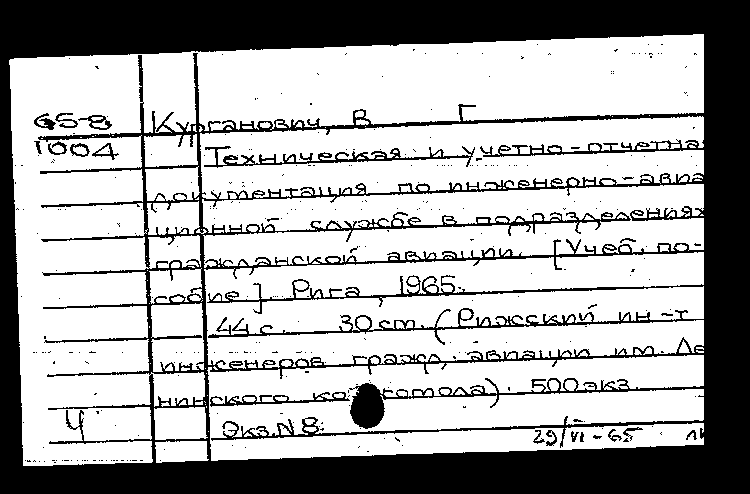 65-8 Курганович, В Г
1004 Техническая и учетно-отчетная
документация по инженерно-авиа
ционной службе в подразделениях
гражданской авиации. [Учеб. по-
собие] Рига, 1965.
44 с. 30 см. (Рижский ин-т
инженеров гражд. авиации им. Ле
нинского комсомола). 500 экз.
Ч Экз. N 8.
29/VI-65